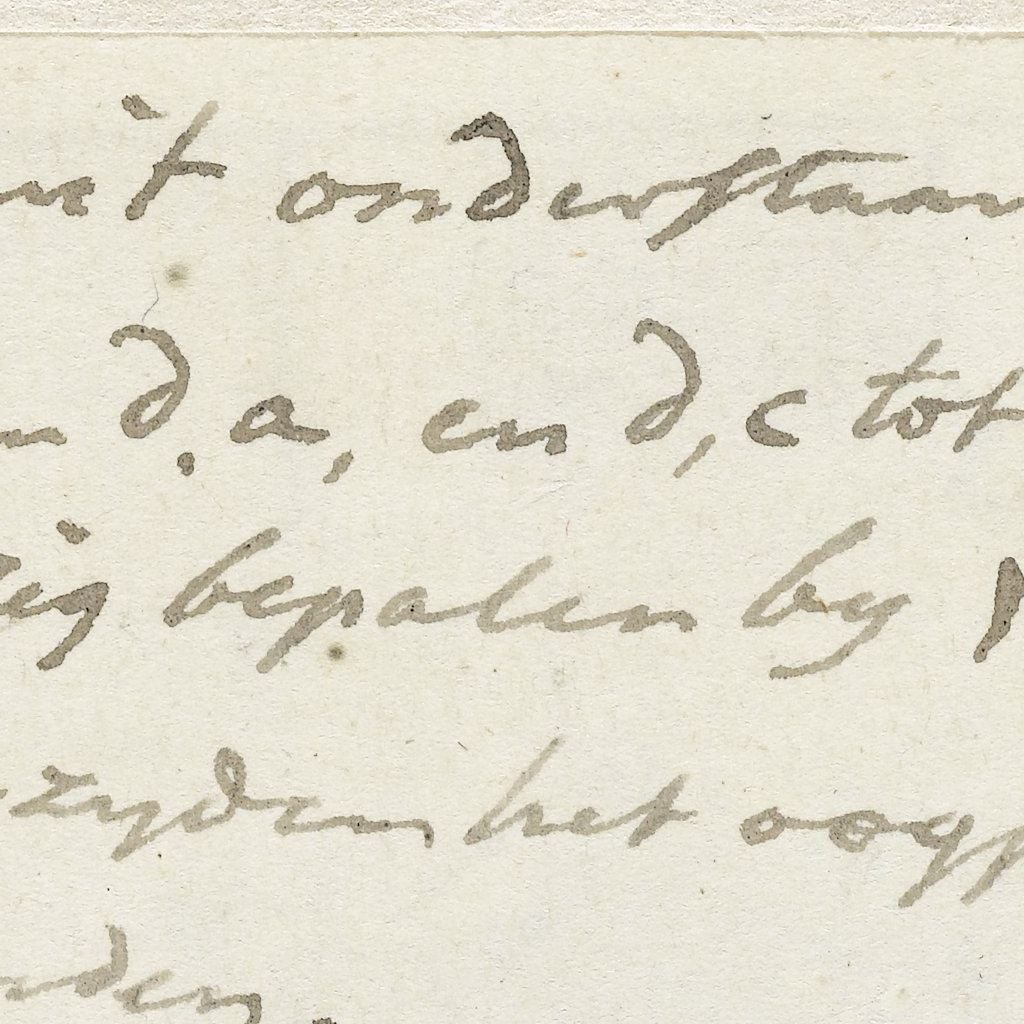 uit onderstaan
n d. a, en d, c tot
zig bepalen by
zyden, het oogp
nden.